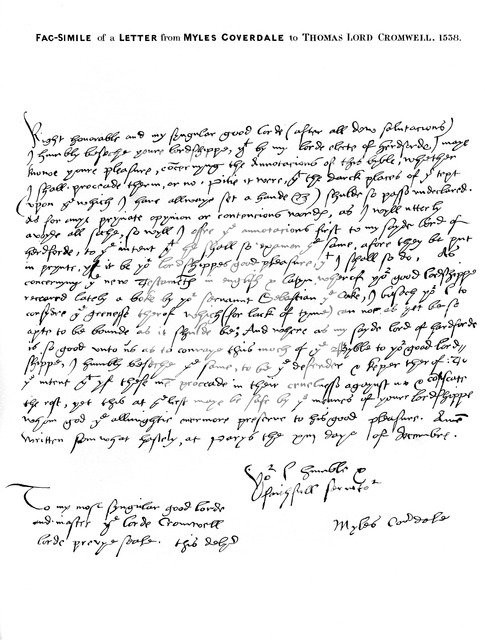 FAC-SIMILE of a LETTER from MYLES COVERDALE to THOMAS LORD CROMWELL. 1538.
Right honorable and my syngular good lorde (after all dew salutacions)
I humbly beseche youre lordshippe, yt by my lorde electe of herdforde, I maye
knowe youre pleasure, concernyng the Annotacions of this byble, whether
I shall proceade therin, or no. Pitie it were, yt the darck places of ye text
(upon ye which I have allwaye set a hande) shulde so passe undeclared.
As for any pryvate opynion or contencious wordes, as I wyll utterly
avoyde all soche, so wyll I offre ye annotacions first to my sayde lord of
herdforde, to ye intent yt he shall so examen ye same, afore they be put
in prynte, yf it be yor lordshippes good pleasure, yt I shall so do. As
concernyng ye new Testamentes in english & latyn, wherof yor good lordshippe
receaved lately a boke by yor servaunt Sebastian ye Coke, I besech yor l. to
considre ye grenesse therof which (for lack of tyme) can not as yet be so
apte to be bounde as it shulde be; And where as my sayde lord of hardforde
is so good unto us as to convaye this moch of ye Bible to yor good lord-
shippe, I humbly beseche ye same, to be ye defender & keper therof: To
ye intent yt yf these men proceade in their cruelnesse agaynst us & confiscate
the rest, yet this at ye lest maye be safe by ye meanes of youre lordshippe
whom god ye allmightie evermore preserve to his good pleasure. Amen
Written somwhat hastely, at Parys the xiii daye of Decembre.
Yor l. humble &
faythfull servitor
Myles Coverdale
To my most syngular good lorde
and master ye lorde Cromwell
lorde prevye seale. this delyvered